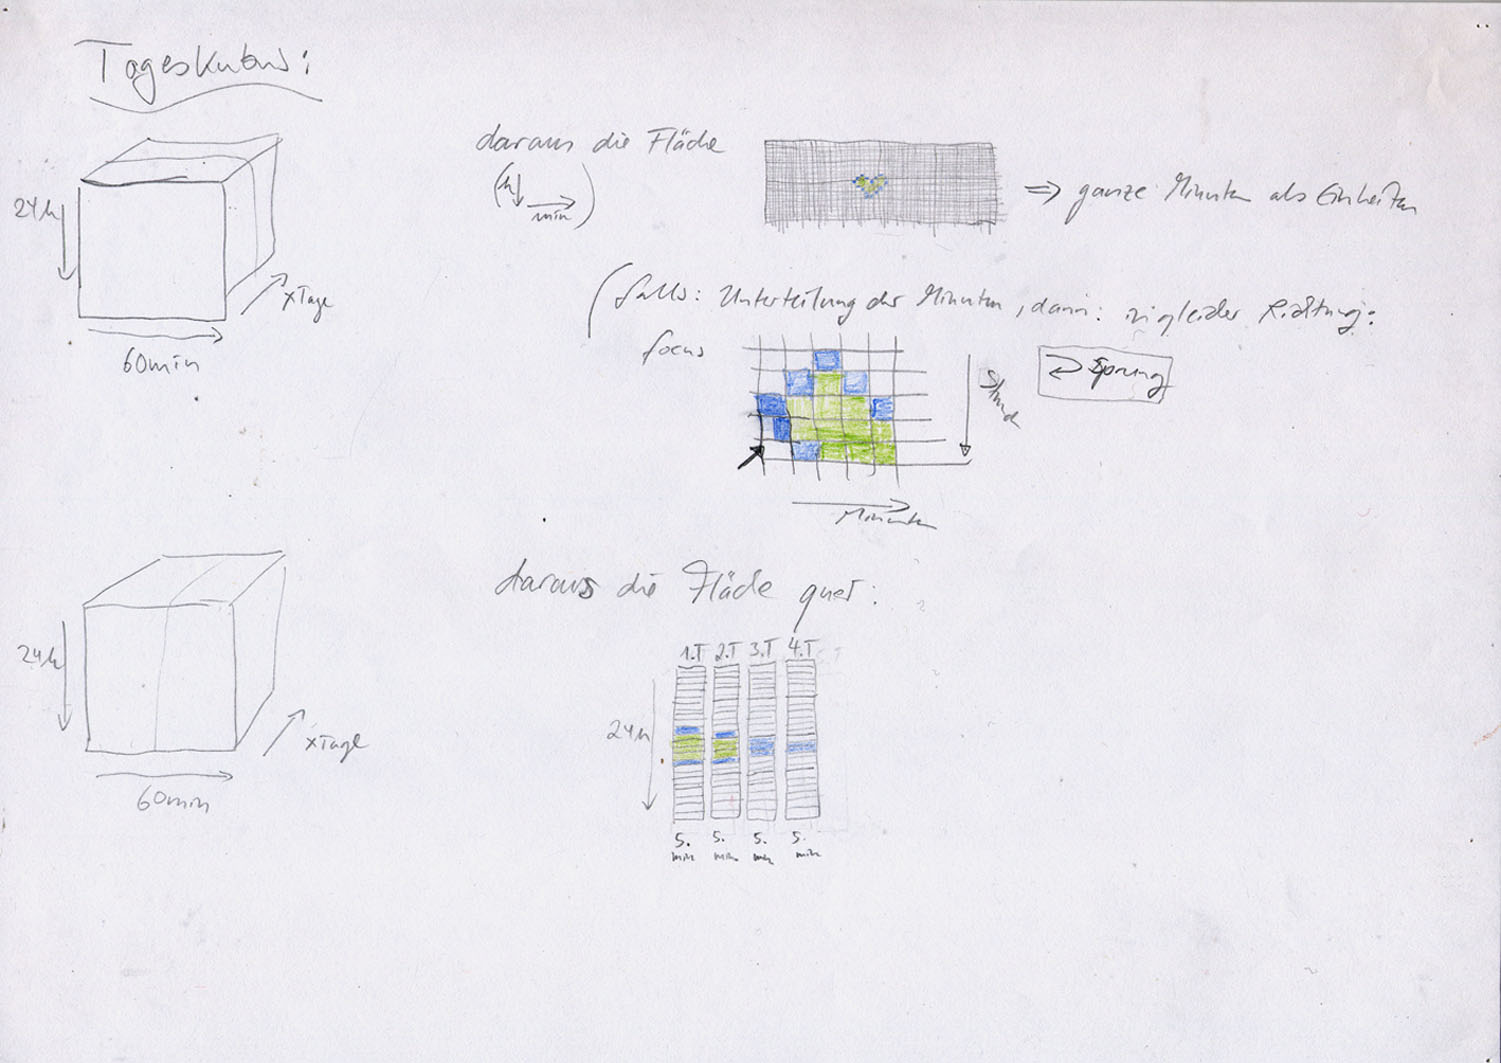 Tageskubus:
24h
60min
xTage
daraus die Fläche
(h
min)
⇒ ganze Minuten als Einheiten
(falls: Unterteilung der Minuten, dann: in gleicher Richtung:
focus
Stund
Sprung
Minuten
24h
60min
xTage
daraus die Fläche quer:
1.T 2.T 3.T 4.T
24h
5. 5. 5. 5.
min min min min